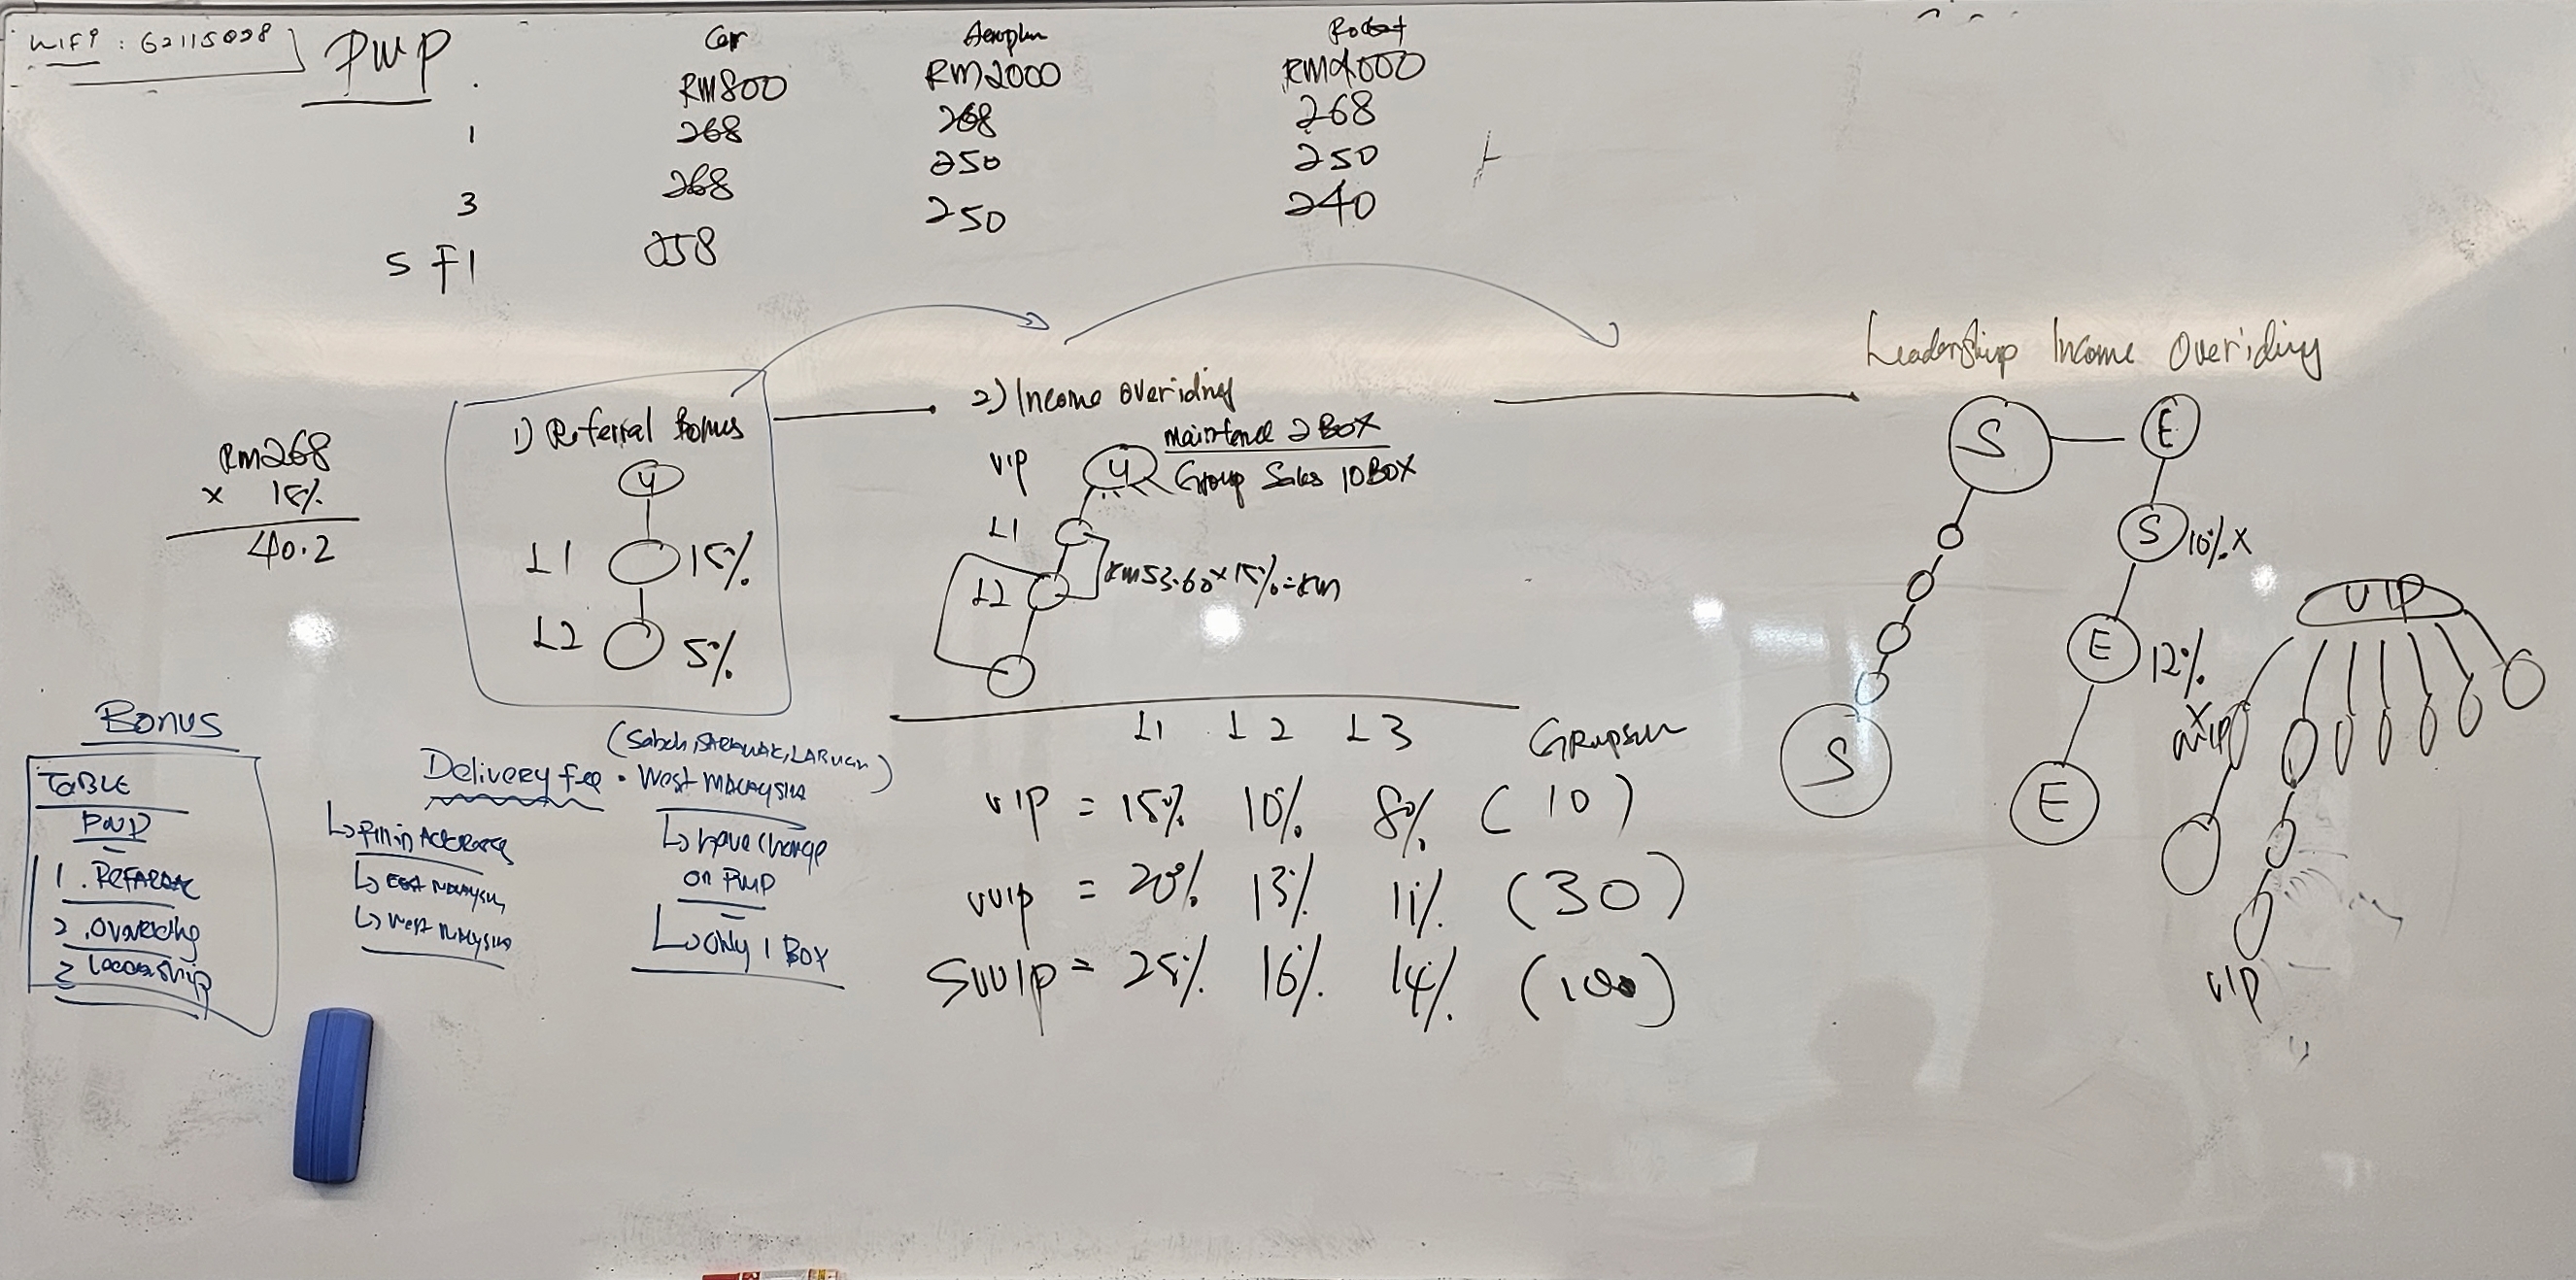 WIFI : 62115028
PWP
Car Aeroplan Rocket
RM800 RM2000 RM4000
1 268 268 268
250 250
3 268 250 240
5 F1 258
Leadership Income Overiding
1) Referral Bonus
2) Income overiding
RM268
x 15%
40.2
U
L1 15%
L2 5%
VIP U Maintence 2 BOX
Group Sales 10 BOX
L1
L2 RM53.60 x 15% = RM
S E
S 10% X
E 12%
S E
VIP
X
VIP
VIP
L1 L2 L3
VIP = 15% 10% 8% (10)
VVIP = 20% 13% 11% (30)
SVVIP = 25% 16% 14% (100)
Bonus
TABLE
PWP
1.
2. Overiding
3 leadership
(Sabah, SARAWAK, LABUAN)
Delivery fee • West MALAYSIA
↳ Fill in
↳ East MALAYSIA
↳ West MALAYSIA
↳ have charge
on PWP
↳ only 1 BOX